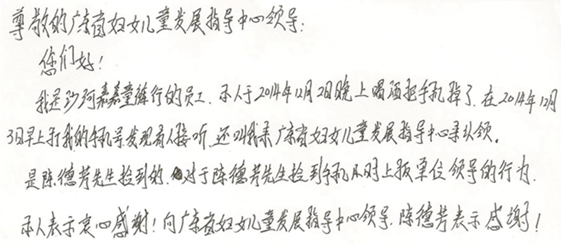 尊敬的广东省妇女儿童发展指导中心领导:
您们好!
我是沙河嘉嘉童裤行的员工. 本人于2014年12月2日晚上喝酒把手机掉了. 在2014年12月
3日早上打我的手机号发现有人接听. 还叫我来广东省妇女儿童发展指导中心来认领.
是陈德芳先生捡到的. 对于陈德芳先生捡到手机及时上报单位领导的行为.
本人表示衷心感谢! 向广东省妇女儿童发展指导中心领导. 陈德芳表示感谢!